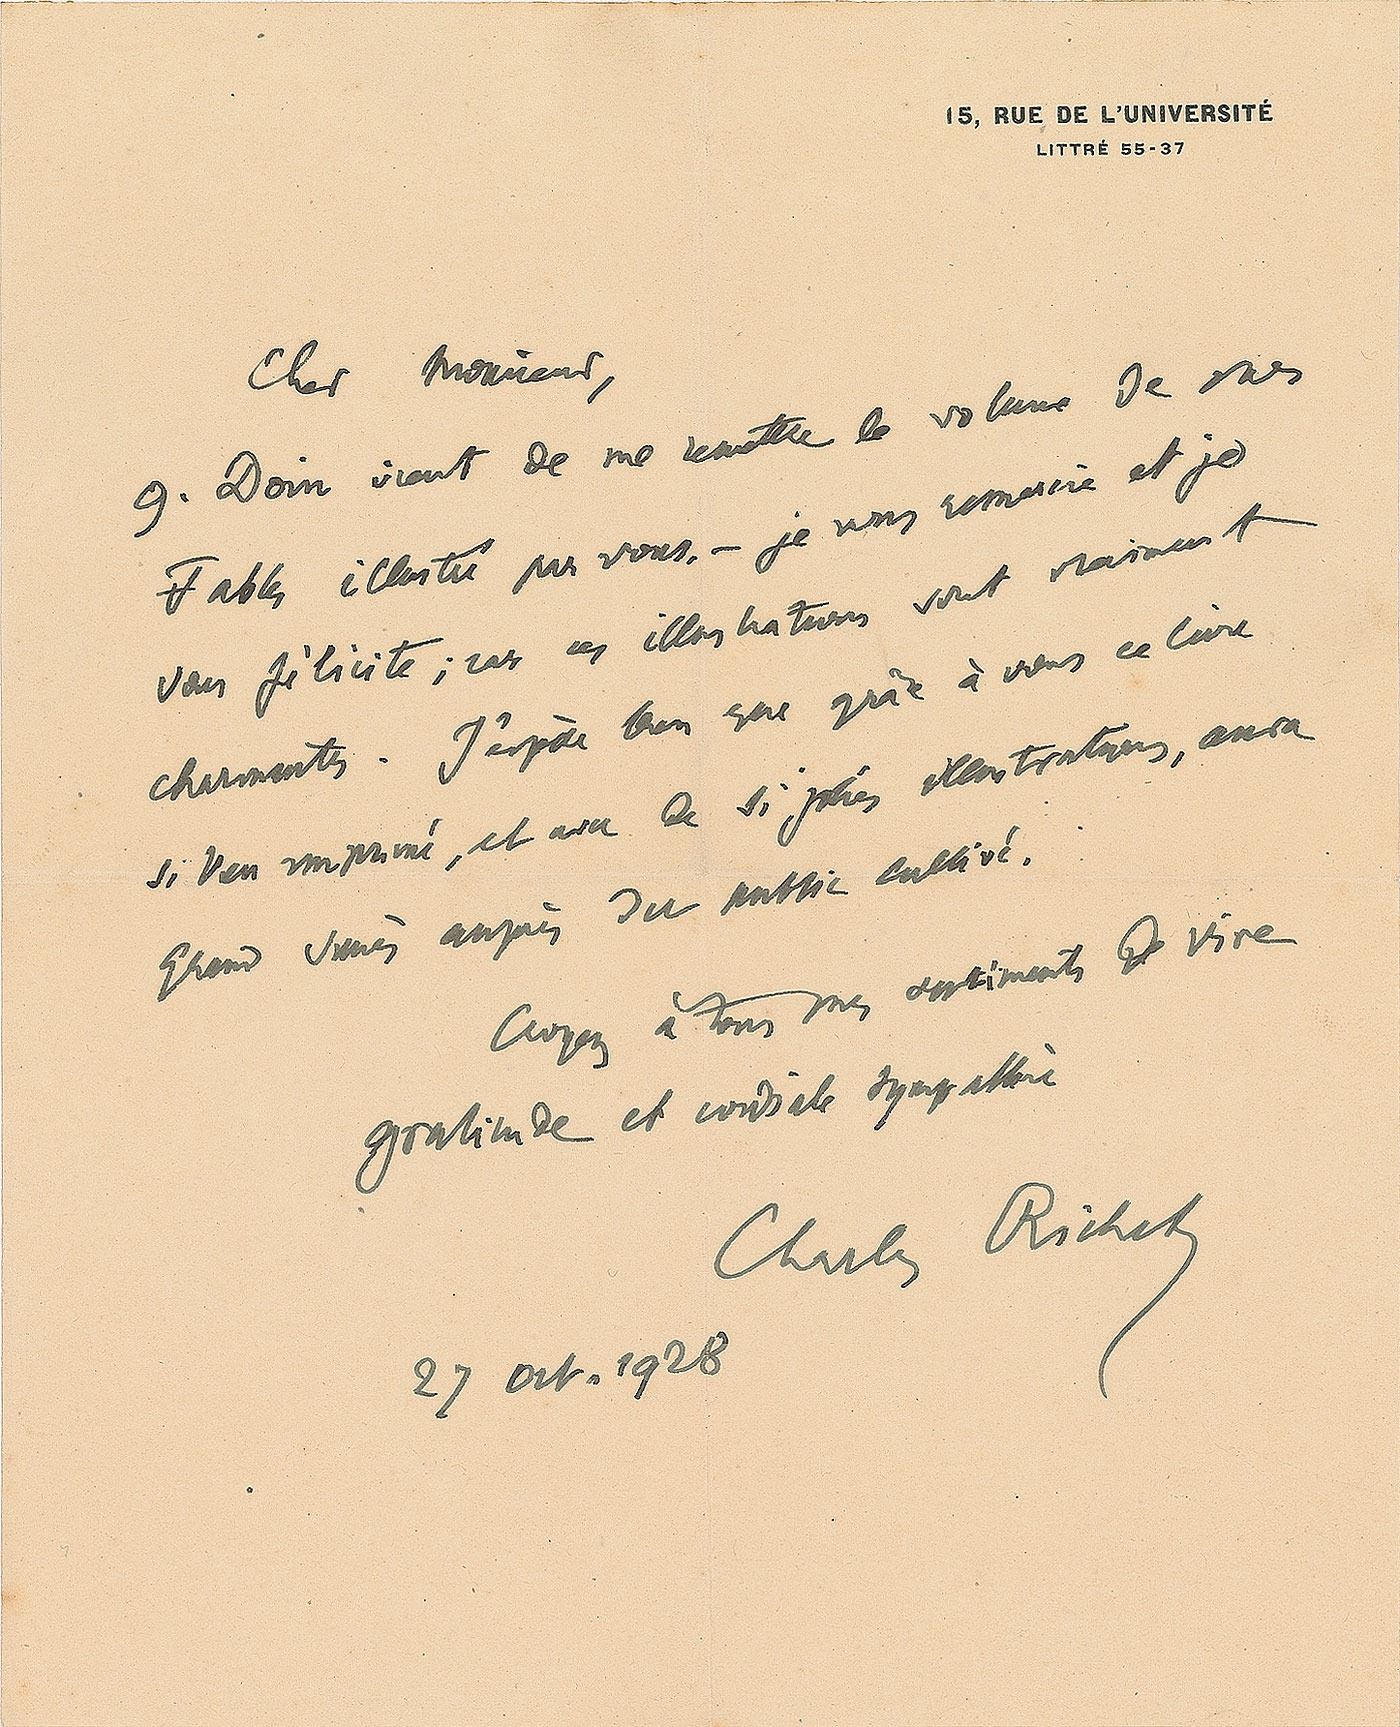 15, RUE DE L'UNIVERSITÉ
LITTRÉ 55-37
Cher Monsieur,
G. Doin vient de me remettre le volume de mes
Fables illustré par vous. — je vous remercie et je
vous félicite ; car ces illustrations sont vraiment
charmantes. J'espère bien que grâce à vous ce livre
si bien imprimé, et avec de si jolies illustrations, aura
grand succès auprès du public cultivé.
Croyez à tous mes sentiments de vive
gratitude et cordiale sympathie
Charles Richet
27 oct. 1928